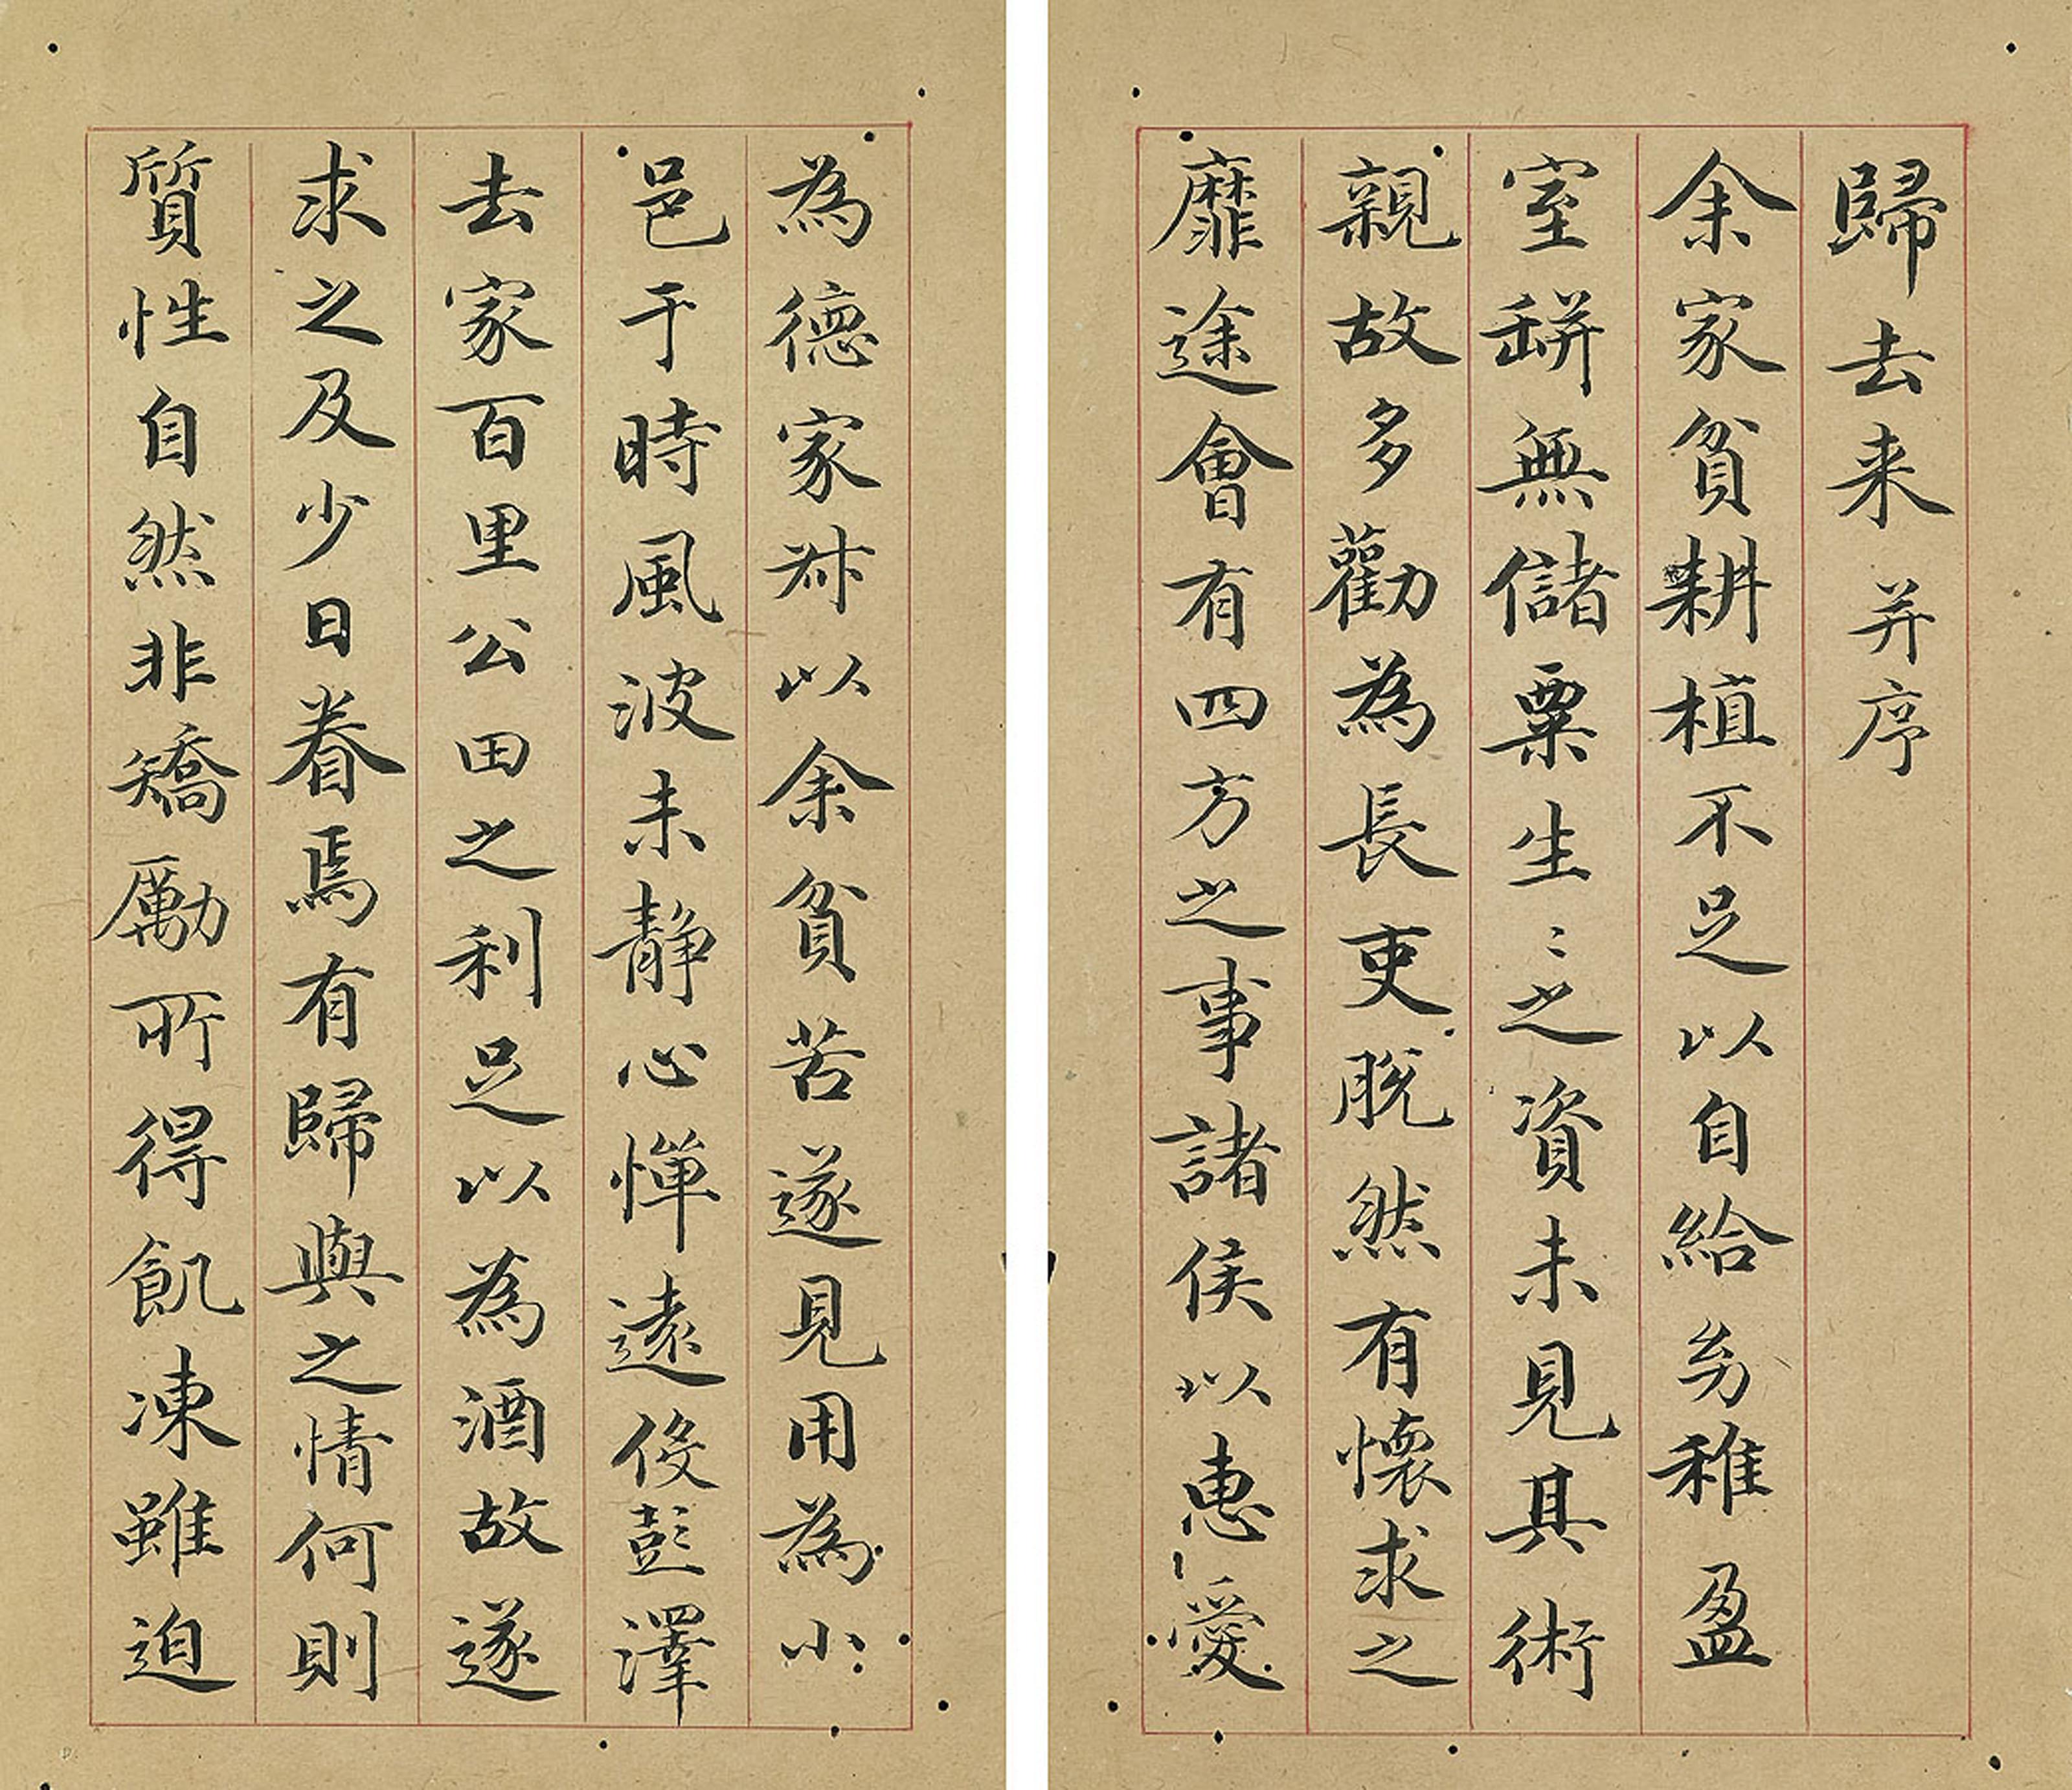 歸去来并序
余家貧耕植不足以自給㓜稚盈
室缾無儲粟生〻之資未見其術
親故多勸為長吏脱然有懷求之
靡途會有四方之事諸侯以惠愛
為德家叔以余貧苦遂見用為小
邑于時風波未静心憚遠役彭澤
去家百里公田之利足以為酒故遂
求之及少日眷焉有歸與之情何則
質性自然非矯勵所得飢凍雖迫